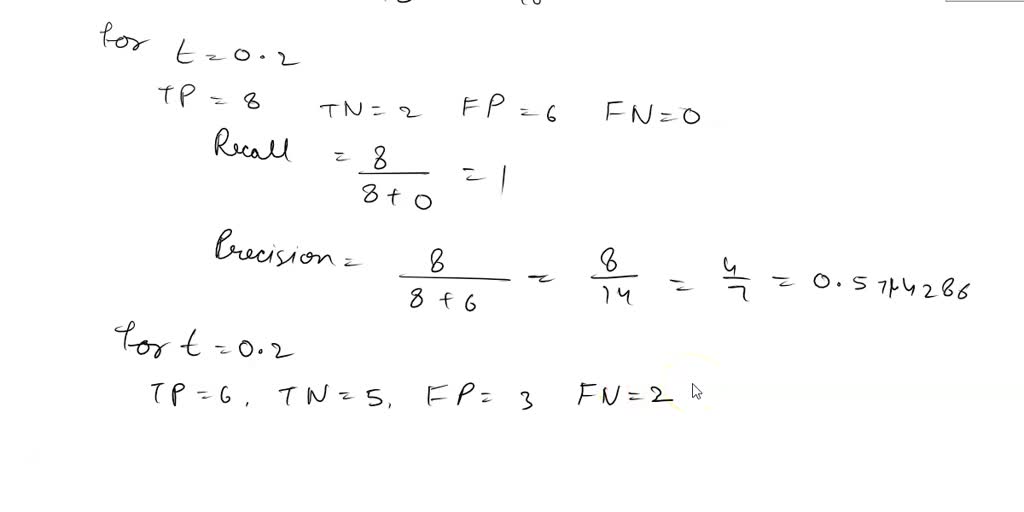 for t = 0.2
TP = 8 TN = 2 FP = 6 FN = 0
Recall = 8 / 8 + 0 = 1
Precision = 8 / 8 + 6 = 8 / 14 = 4 / 7 = 0.5714286
for t = 0.2
TP = 6, TN = 5, FP = 3 FN = 2